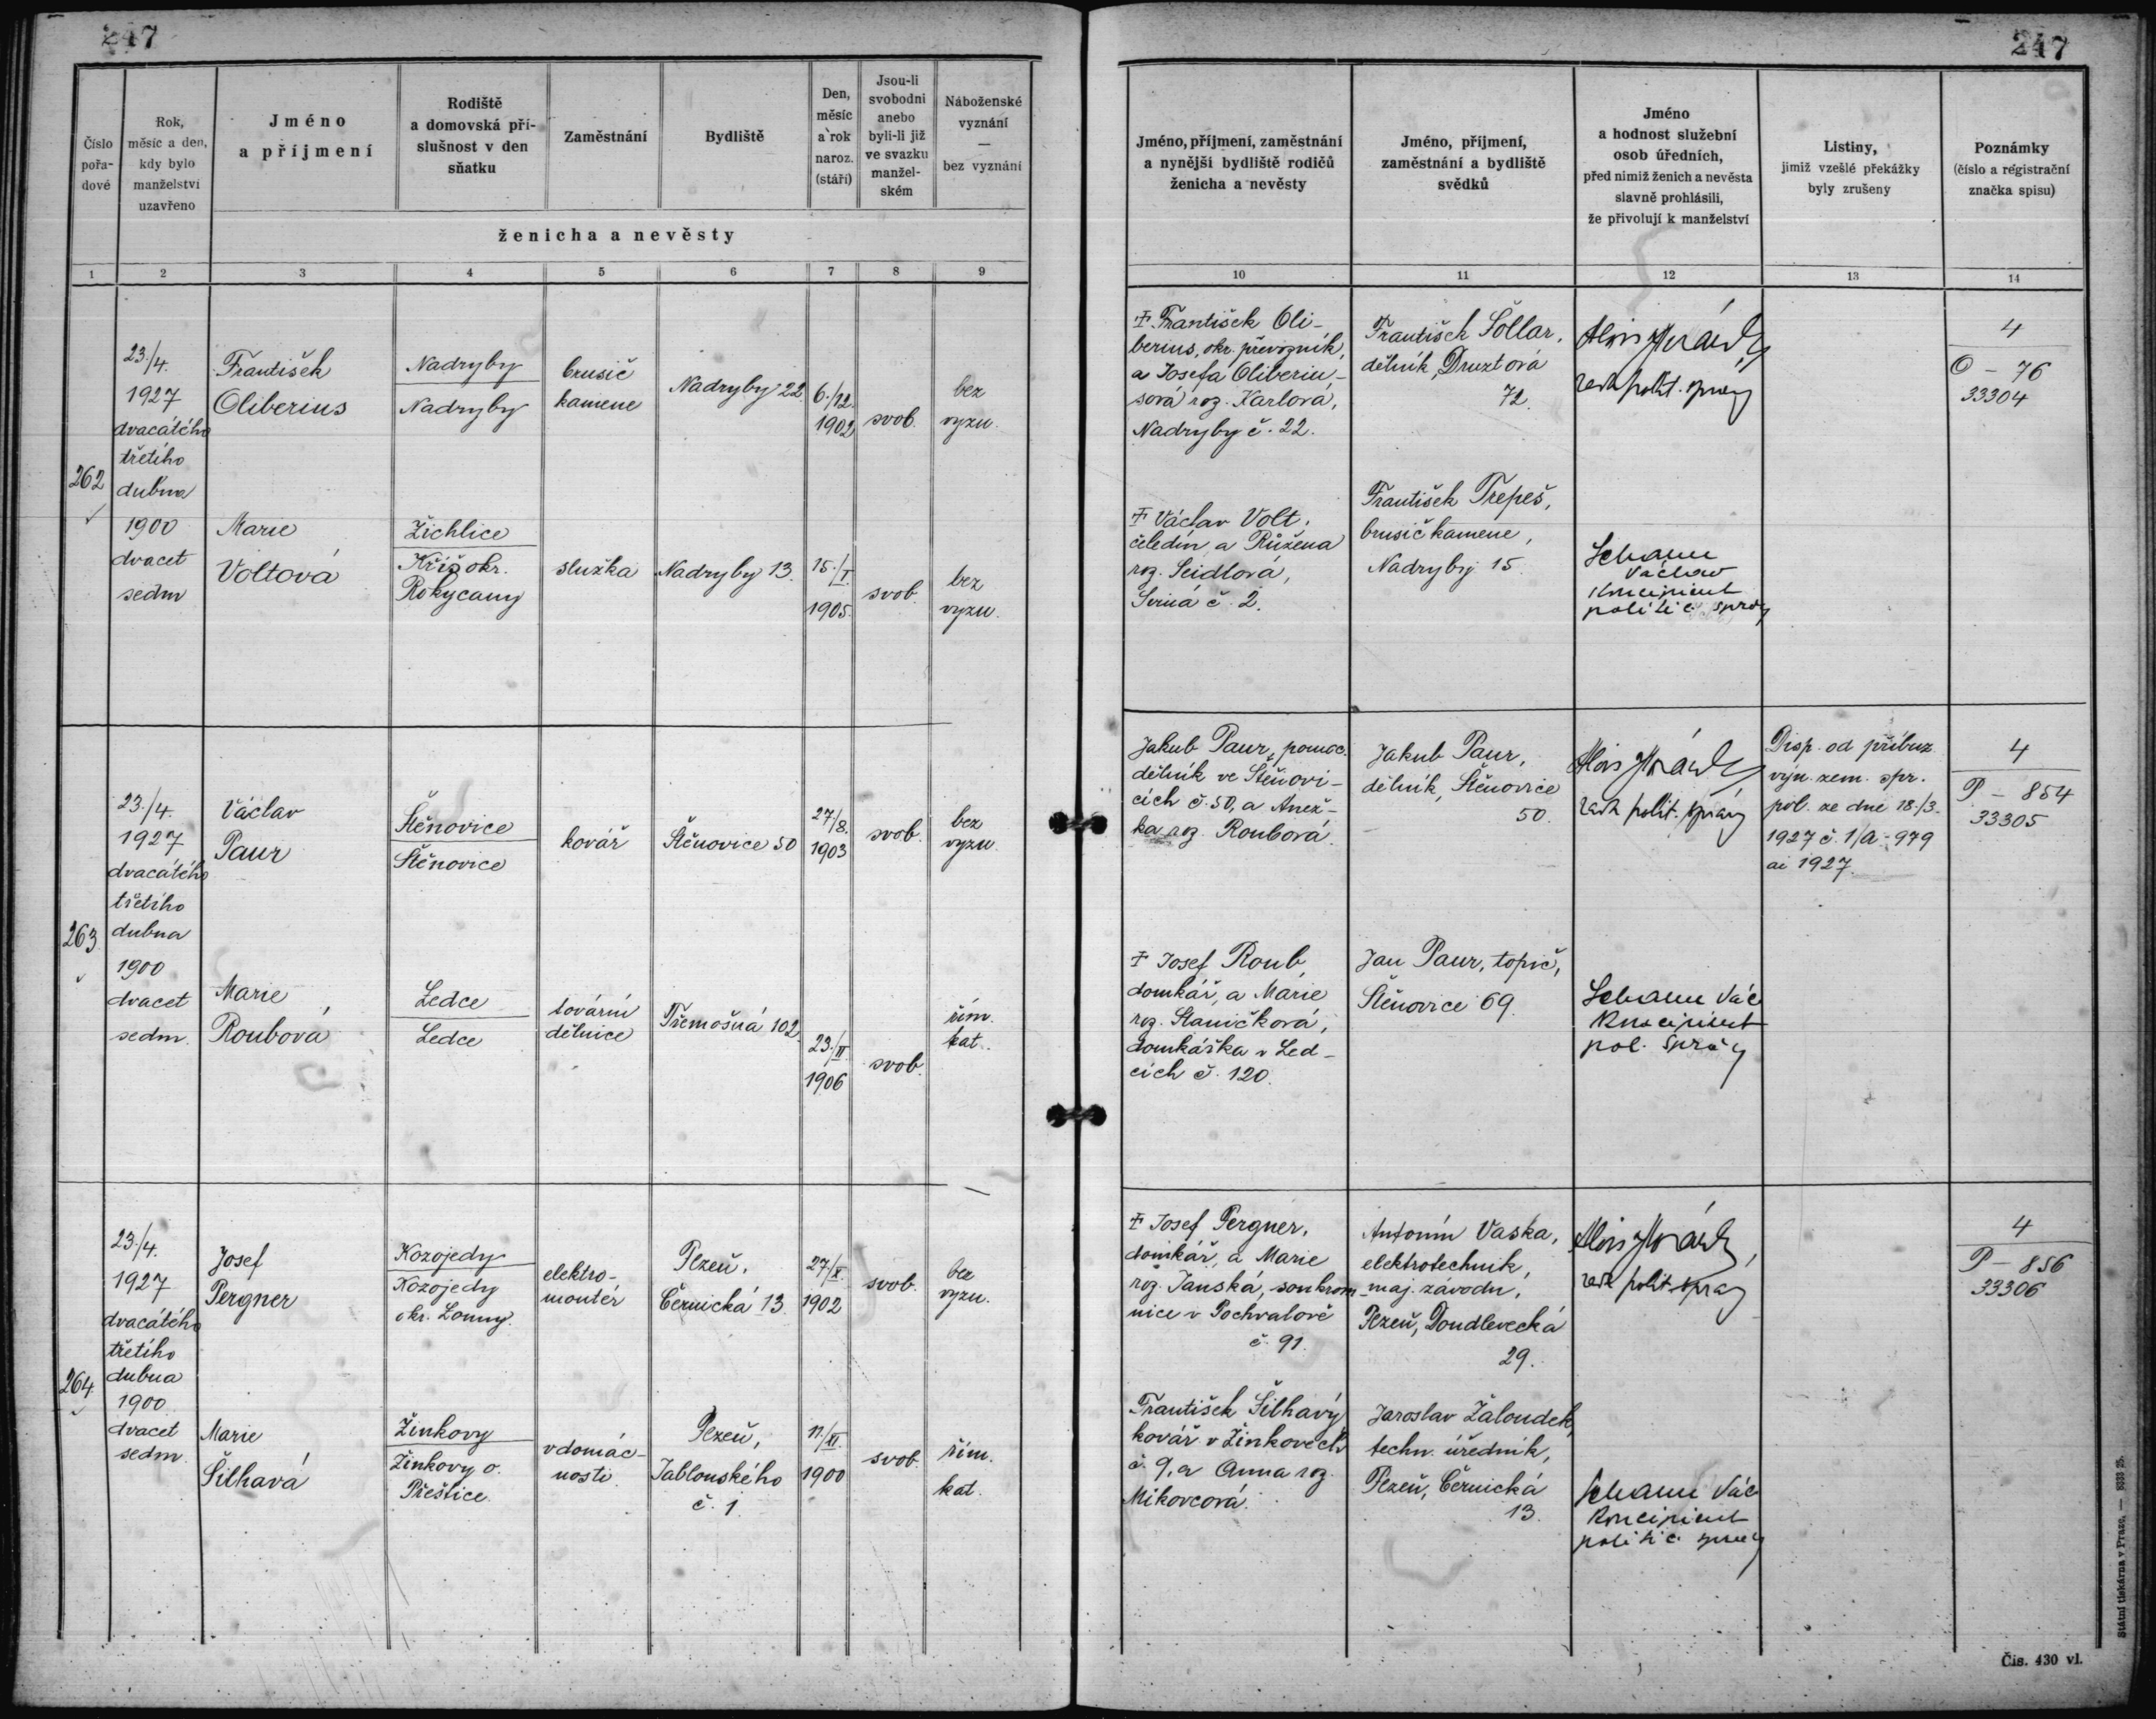 247
247
Číslo
pořa-
dové
Rok,
měsíc a den,
kdy bylo
manželství
uzavřeno
Jméno
a příjmení
Rodiště
a domovská pří-
slušnost v den
sňatku
Zaměstnání
Bydliště
Den,
měsíc
a rok
naroz.
(stáří)
Jsou-li
svobodni
anebo
byli-li již
ve svazku
manžel-
ském
Náboženské
vyznání
—
bez vyznání
ženicha a nevěsty
Jméno, příjmení, zaměstnání
a nynější bydliště rodičů
ženicha a nevěsty
Jméno, příjmení,
zaměstnání a bydliště
svědků
Jméno
a hodnost služební
osob úředních,
před nimiž ženich a nevěsta
slavně prohlásili,
že přivolují k manželství
Listiny,
jimiž vzešlé překážky
byly zrušeny
Poznámky
(číslo a registrační
značka spisu)
1 2 3 4 5 6 7 8 9 10 11 12 13 14
262
23./4.
1927
dvacátého
třetího
dubna
1900
dvacet
sedm
František
Oliberius
Nadryby
Nadryby
brusič
kamene
Nadryby 22.
6./12.
1902
svob.
bez
vyzn.
Marie
Voltová
Žichlice
Kříše okr.
Rokycany
služka
Nadryby 13.
15./I.
1905.
svob.
bez
vyzn.
František Oli-
berius, okr. převozník,
a Josefa Oliberiu-
sová roz. Karlova,
Nadryby č. 22.
František Šollar,
dělník, Druztová
72.
Alois
rada polit. správy
4
O - 76
33304
Václav Volt,
čeledín a Růžena
roz. Seidlová,
č. 2.
František Trepeš,
brusič kamene,
Nadryby 15.
Schamm
Václav
koncipient
politic. správy
263
23./4.
1927
dvacátého
třetího
dubna
1900
dvacet
sedm.
Václav
Paur
Štěnovice
Štěnovice
kovář
Štěnovice 50
27./8.
1903
svob.
bez
vyzn.
Marie
Roubová
Ledce
Ledce
tovární
dělnice
Třemošná 102.
23./II.
1906
svob.
řím.
kat.
Jakub Paur, pomoc.
dělník ve Štěnovi-
cích č. 50, a Anež-
ka roz. Roubová.
Jakub Paur,
dělník, Štěnovice
50.
Alois
rada polit. správy
Disp. od příbuz.
výn. zem. spr.
pol. ze dne 18./3.
1927 č. 1/A-979
ai 1927.
4
P - 854
33305
Josef Roub,
domkář, a Marie
roz. Staničková,
domkářka v Led-
cích č. 120.
Jan Paur, topič,
Štěnovice 69.
Schamm Vác
koncipient
pol. správy
264.
23./4.
1927
dvacátého
třetího
dubna
1900
dvacet
sedm.
Josef
Pergner
Kozojedy
Kozojedy
okr. Louny.
elektro-
montér
Plzeň,
Černická 13.
27./X.
1902
svob.
bez
vyzn.
Marie
Šilhavá
Žinkovy
Žinkovy o.
Přeštice.
v domác-
nosti.
Plzeň,
Jablonského
č. 1.
11./XI.
1900
svob.
řím.
kat.
Josef Pergner,
domkář, a Marie
roz. Janská, soukrom-
nice v Pochvalově
č. 91.
Antonín Vaska,
elektrotechnik,
maj. závodu,
Plzeň, Doudlevecká
29.
Alois
rada polit. správy
4
P - 856
33306
František Šilhavý
kovář v Žinkovech
č. 9, a Anna roz.
Mikovcová.
Jaroslav Žaloudek,
techn. úředník,
Plzeň, Černická
13.
Schamm Vác
koncipient
politic. správy
Státní tiskárna v Praze. — 8333 25.
Čís. 430 vl.